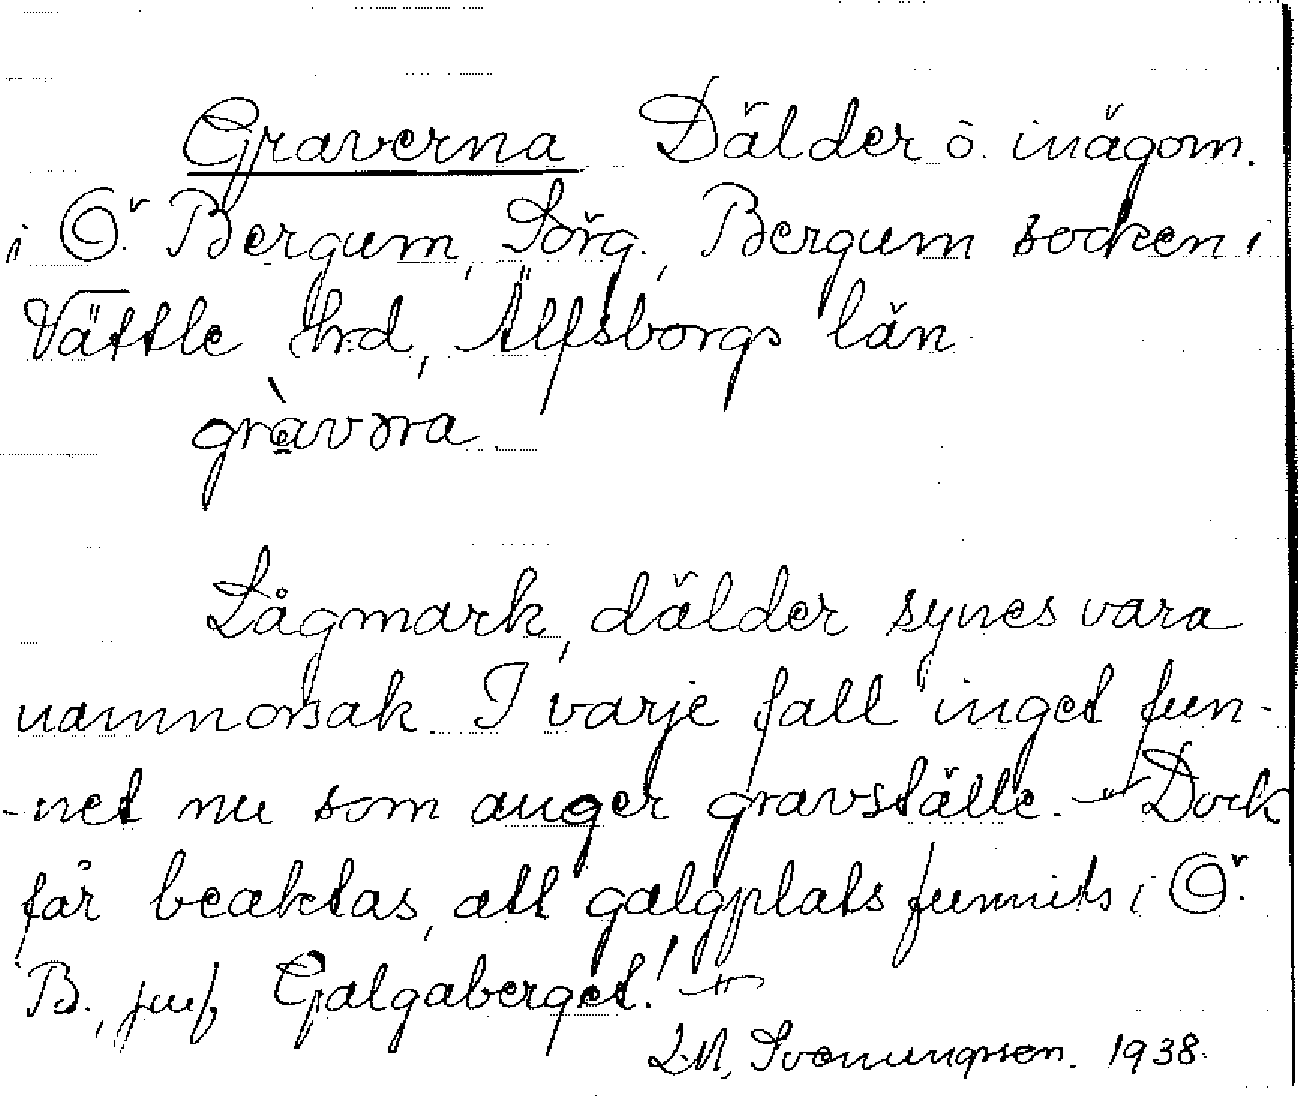 Graverna Dälder o. inägom.
i Ö. Bergum, Sörg., Bergum socken i
Vättle hrd, Älfsborgs län
gràvəra
Lågmark, dälder synes vara
namnorsak. I varje fall inget fun-
-net nu som anger gravställe. — Dock
får beaktas, att galgplats funnits i Ö.
B., jmf Galgaberget! —
Svenungsson. 1938.